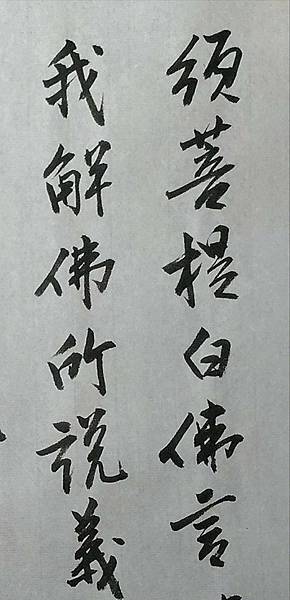 须菩提白佛言
我解佛所说義